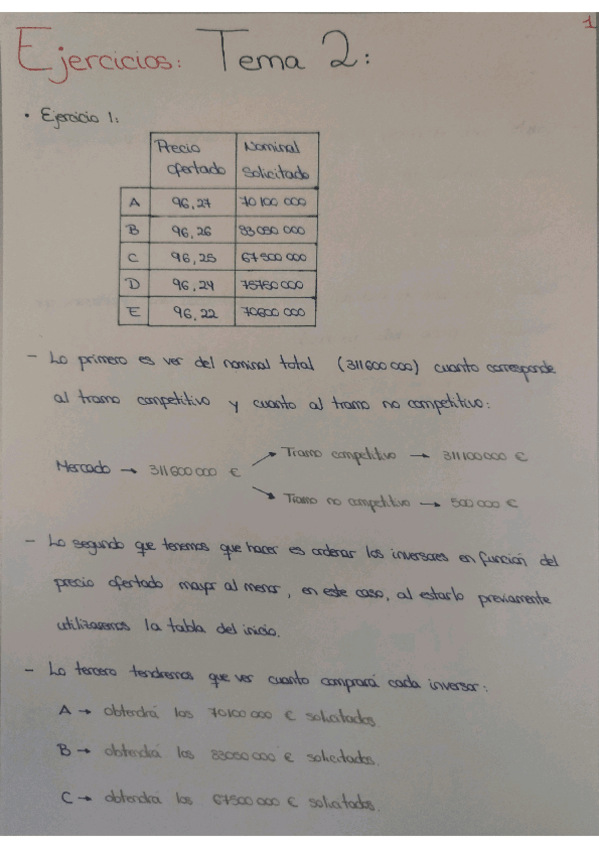 1
Ejercicios: Tema 2:
• Ejercicio 1:
Precio ofertado Nominal solicitado
A 96,27 70 100 000
B 96,26 83 050 000
C 96,25 67 500 000
D 96,24 75 750 000
E 96,22 70 800 000
- Lo primero es ver del nominal total (311 600 000) cuanto corresponde
al tramo competitivo y cuanto al tramo no competitivo:
Tramo competitivo → 311 100 000 €
Mercado → 311 600 000 €
Tramo no competitivo → 500 000 €
- Lo segundo que tenemos que hacer es ordenar los inversores en función del
precio ofertado mayor al menor, en este caso, al estarlo previamente
utilizaremos la tabla del inicio.
- Lo tercero tendremos que ver cuanto comprará cada inversor:
A → obtendrá los 70 100 000 € solicitados.
B → obtendrá los 83 050 000 € solicitados.
C → obtendrá los 67 500 000 € solicitados.